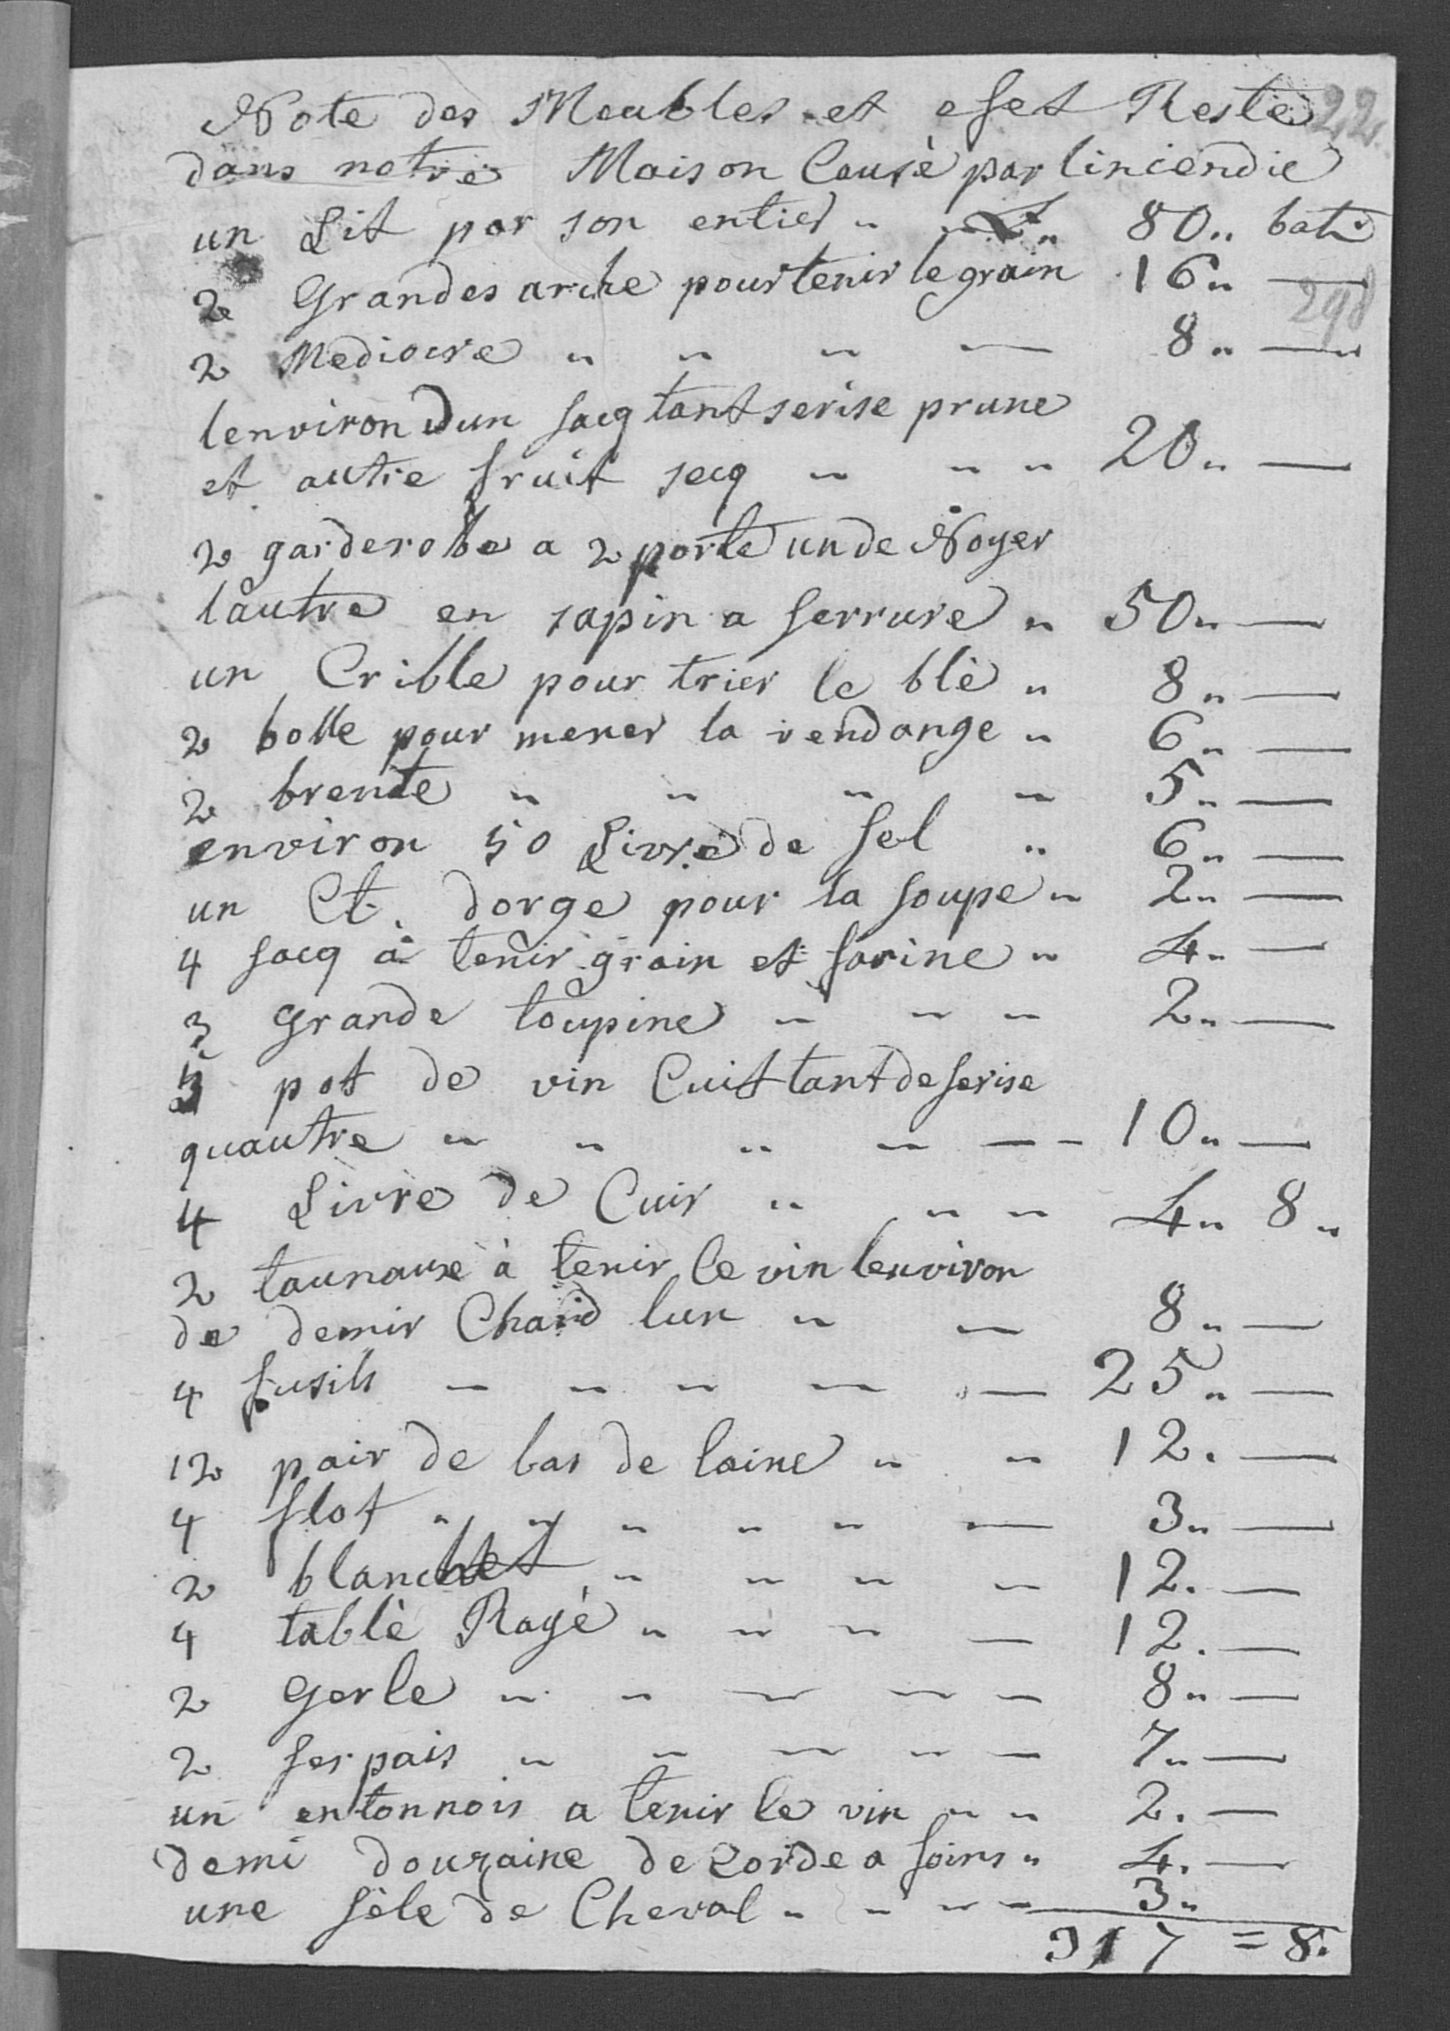 Note des Meubles et efet Reste 22.
dans notre Maison Causè par lincendie
un Lit par son entier " " L. " 80 " batz
2 Grandes arche pour tenir le grain 16 " —
298
2 Mediocre " " " — 8 " —
lenviron dun sacq tant serise prune
et autre fruit secq " " " 20 " —
2 garderobe a 2 porte un de Noyer
lautre en sapin a serrure " 50 " —
un Crible pour trier le blè " 8 " —
2 bolle pour mener la vendange " 6 " —
2 brente " " " " 5 " —
environ 50 Livre de sel " 6 " —
un Ct. dorge pour la soupe " 2 " —
4 sacq à tenir grain et farine " 4 " —
3 grande toupine " " " 2 " —
pot de vin Cuit tant de serise
quautre " " " " — - 10 " —
4 Livre de Cuir " " " 4 " 8 "
2 taunaux à tenir le vin lenviron
de demir Chard lun " — 8 " —
4 fusils — " " — — 25 " —
12 pair de bas de laine " " 12 . —
4 flot " " " " " — 3 " —
2 blanchet " " " " 12 . —
4 tablè Rayè " " " — 12 . —
2 gerle " " — " — 8 " —
2 ser pais " " — " — 7 " —
un entonnois a tenir le vin " " 2 . —
demi douzaine de corde a foins " 4 . —
une sèle de Cheval " " " — 3 "
317 = 8.